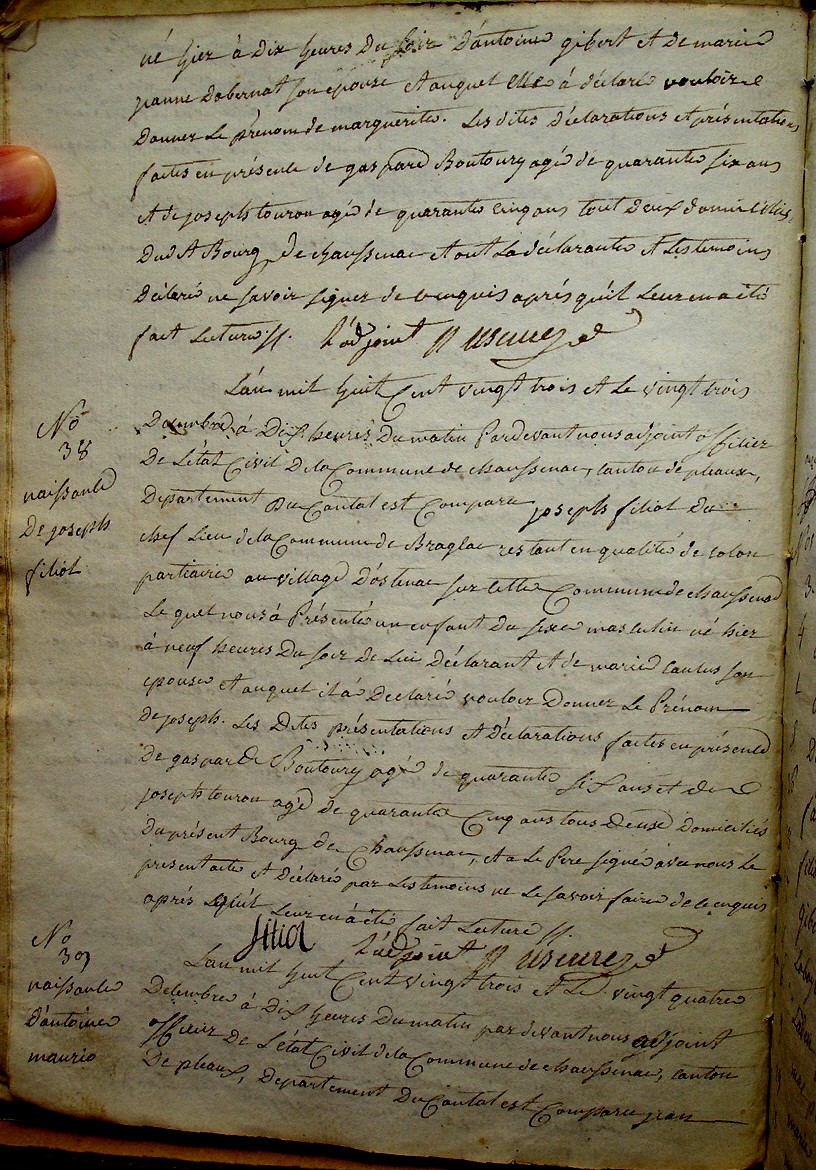 né hier à Dix heures Du soir D'antoine gibert et de marie
jeanne Dabernat son epouse et auquel elle à déclaré vouloire
Donner Le prénom de marguerite. Les dites Déclarations et présentations
faites en présence de gaspard Boutoury agé de quarante six ans
et de joseph touron agé de quarante cinq ans tout deux domiciliés
Dud.t Bourg de chaussenac et ont La déclarante et Les temoins
Déclaré ne savoir signer de ce requis aprés qu'il Leur en a été
fait Lecture //. L'adjoint
L'an mil huit Cent vingt trois et Le vingt trois
Décembre à Dix heures Du matin Pardevant nous adjoint officier
De L'état Civil De la Commune de chaussenac, canton de pleaux,
Departement Du Cantal est Comparu joseph filiol Du
chef Lieu de la Commune de Braglac restant en qualité de colon
partiaire au village D'ostenac sur cette Commune de chaussenac
Le quel nous à Présenté un enfant du sexe masculin né hier
à neuf heures Du soir de Lui Déclarant et de marie son
epouse et auquel il à Declaré vouloir Donner Le Prénom
De joseph. Les Dites présentations et Déclarations faites en présence
De gaspard Boutoury agé de quarante six ans et de
joseph touron agé de quarante Cinq ans tous Deux Domiciliés
Du présent Bourg de Chaussenac, et a Le Pere signé avec nous Le
present acte et Déclaré par Les temoins ne Le savoir faire de ce requis
aprés qu'il Leur en à été fait Lecture //.
filiol L'adjoint
L'an mil huit Cent vingt trois et Le vingt quatre
Décembre à Dix heures Du matin par devant nous adjoint
officier De L'état Civil de la Commune de chaussenac, canton
De pleaux, Departement Du Cantal est Comparu jean
No
38
naissance
De joseph
filiol
No
39
naissance
d'antoine
maurio